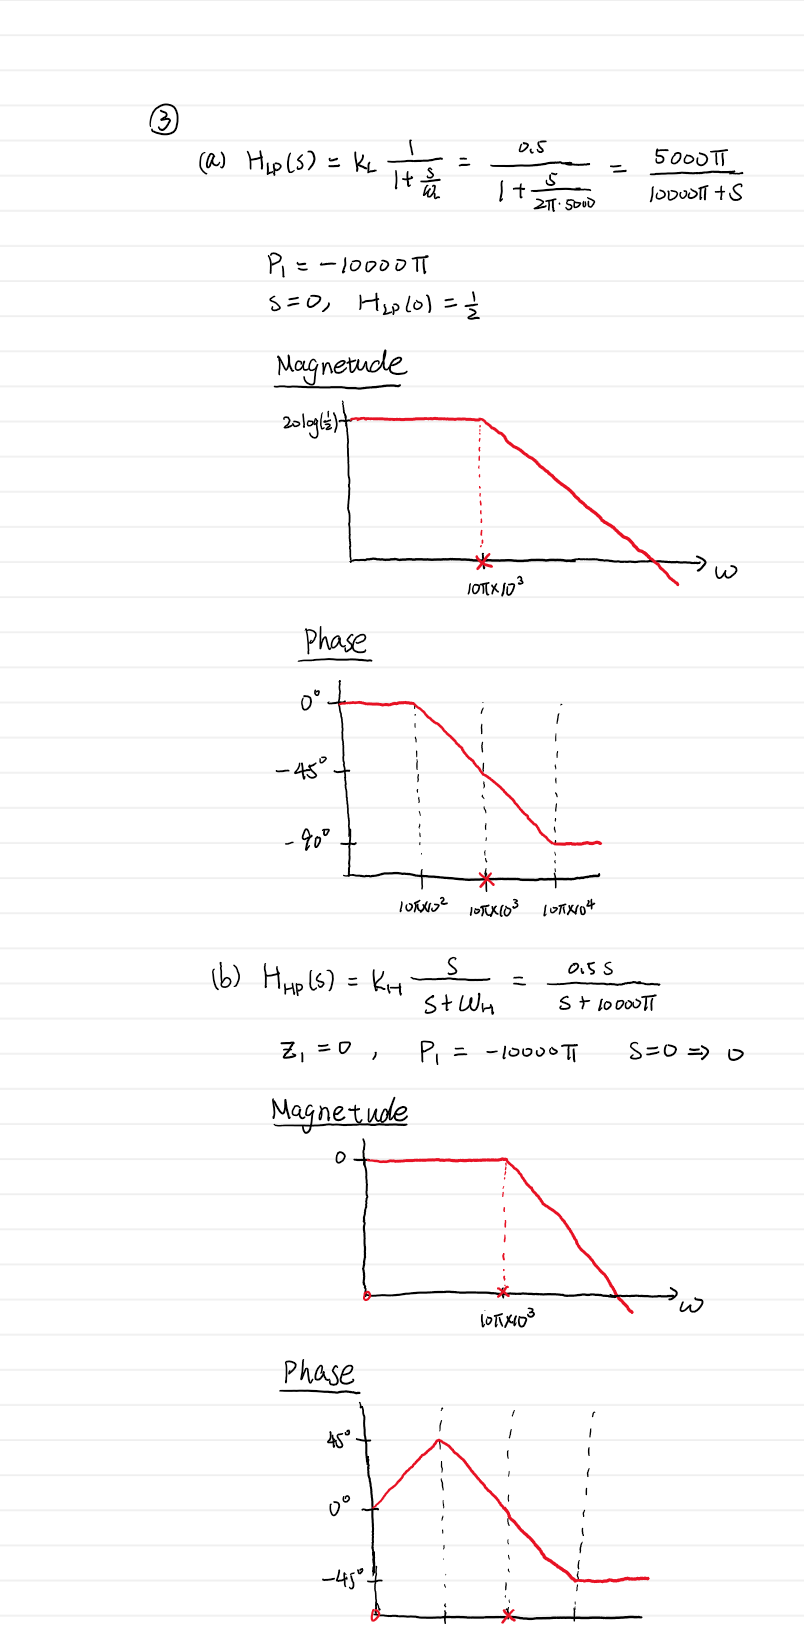 ③
(a) H_LP(s) = K_L 1/(1+s/ω_L) = 0.5/(1+s/(2π·5000)) = 5000π/(10000π+s)
P₁ = -10000π
s=0, H_LP(0) = 1/2
Magnetude
20log(1/2)
ω
10π×10³
Phase
0°
-45°
-90°
10π×10² 10π×10³ 10π×10⁴
(b) H_HP(s) = K_H s/(s+ω_H) = 0.5s/(s+10000π)
Z₁ = 0, P₁ = -10000π s=0 ⇒ 0
Magnetude
0
ω
10π×10³
Phase
45°
0°
-45°